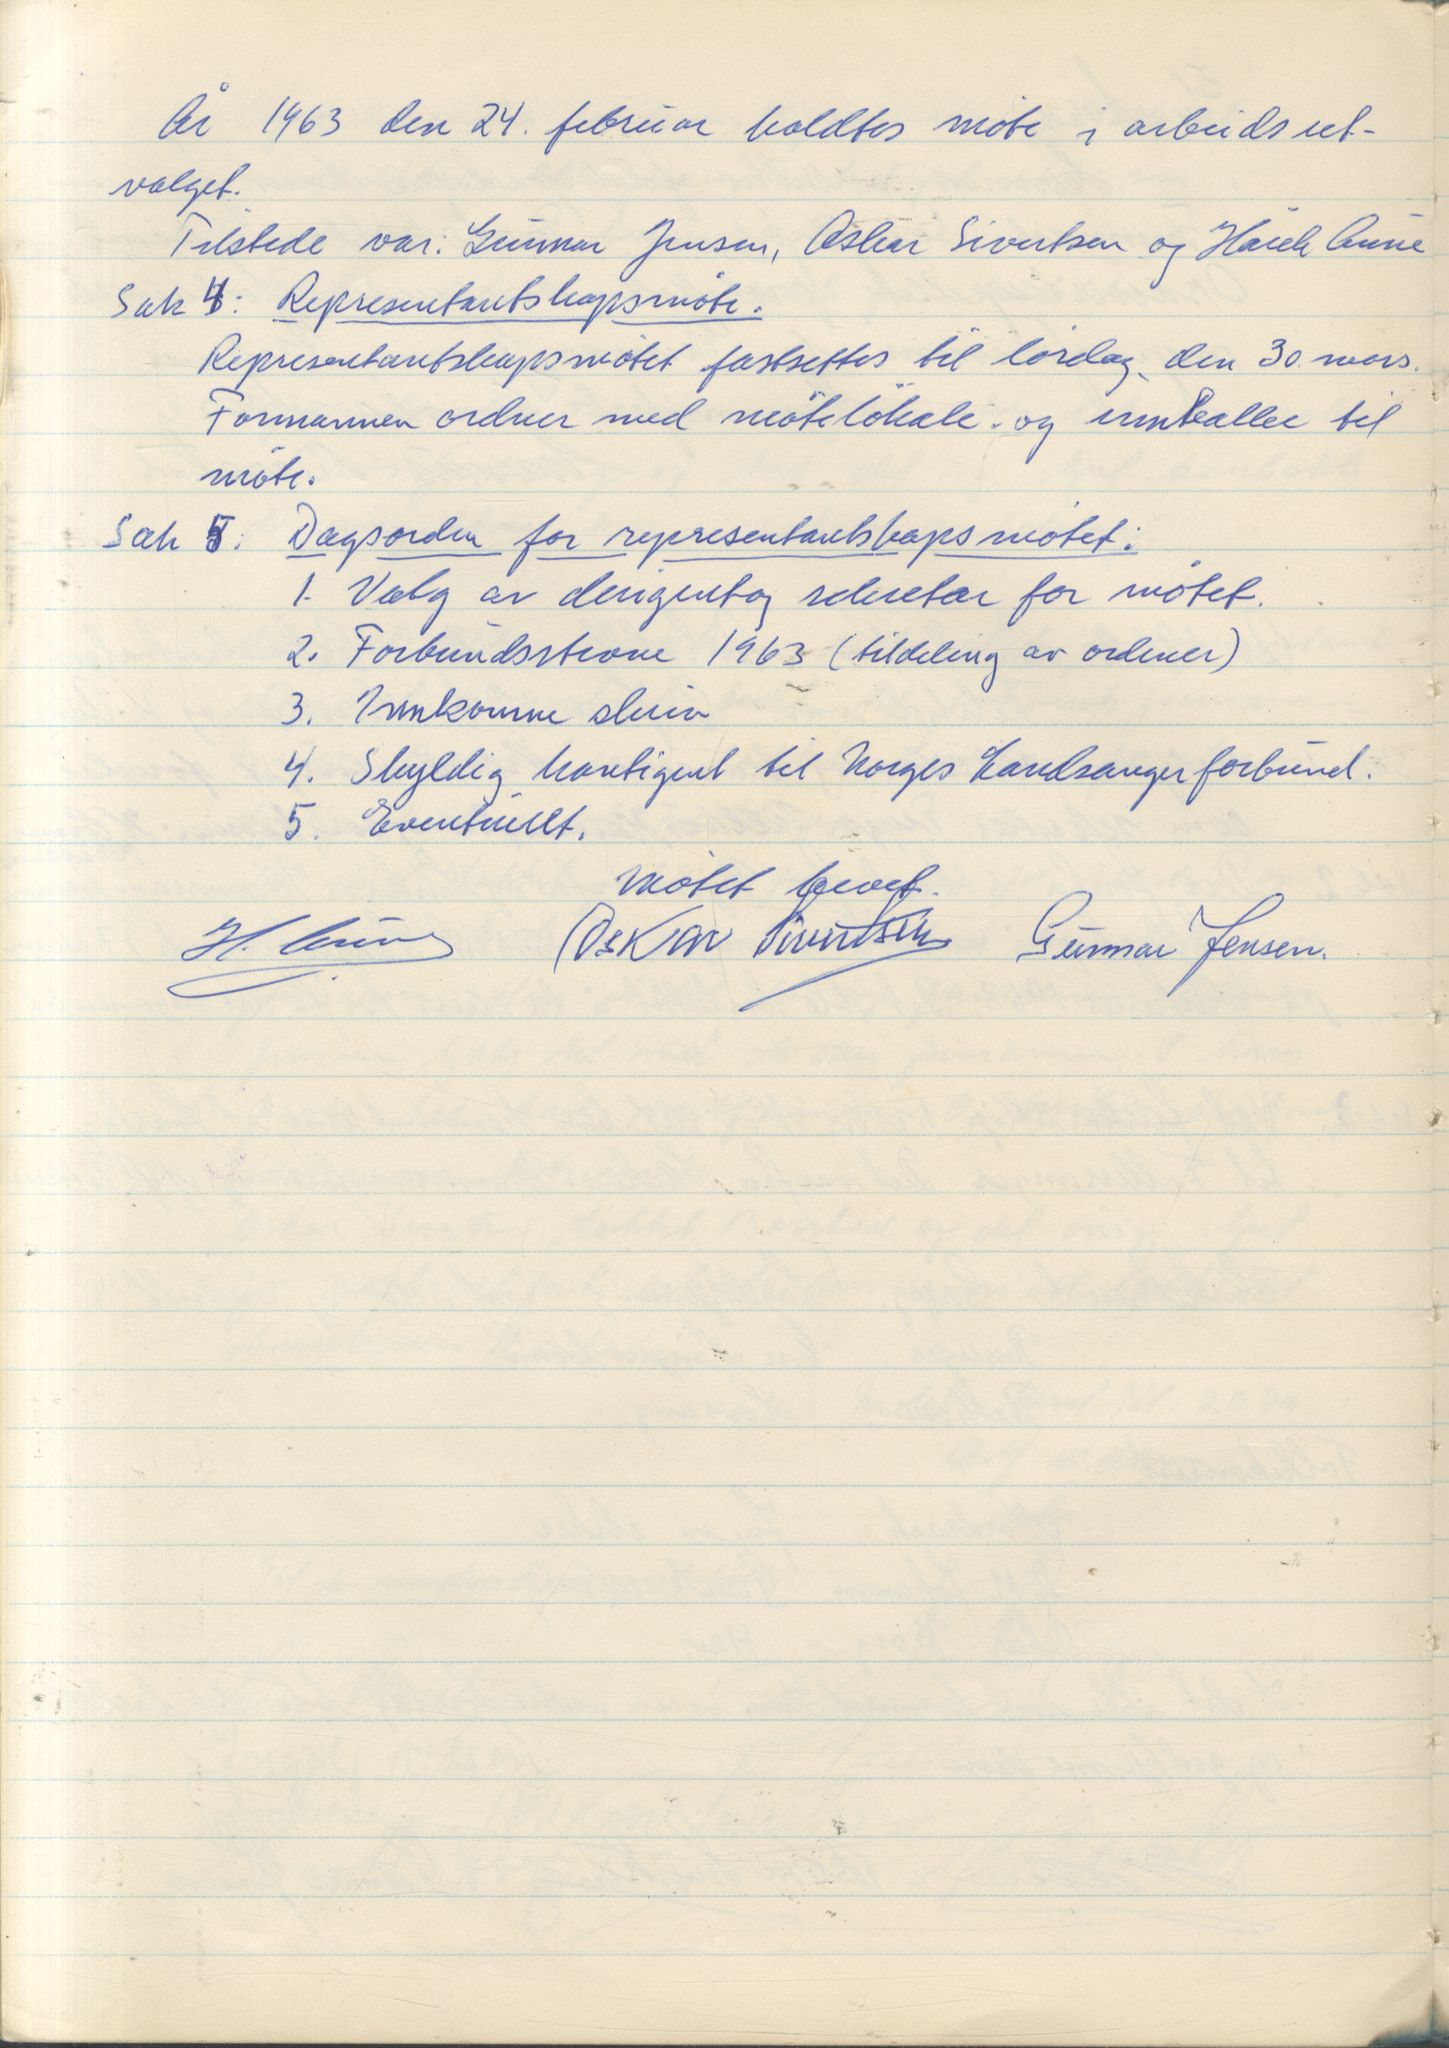 År 1963 den 24. februar holdtes møte i arbeidsut-
valget.
Tilstede var: Gunnar Jensen, Oskar Sivertsen og
Sak 4: Representantskapsmøte.
Representantskapsmøtet fastsettes til lørdag den 30. mars.
Formannen ordner med møtelokale og innkaller til
møte.
Sak 5: Dagsorden for representantskapsmøtet:
1. Valg av dirigent og sekretær for møtet.
2. Forbundsstevne 1963 (tildeling av ordener)
3. Innkomne skriv
4. Skyldig kontigent til Norges Landsangerforbund.
5. Eventuellt.
Møtet hevet.
Oskar Sivertsen Gunnar Jensen.